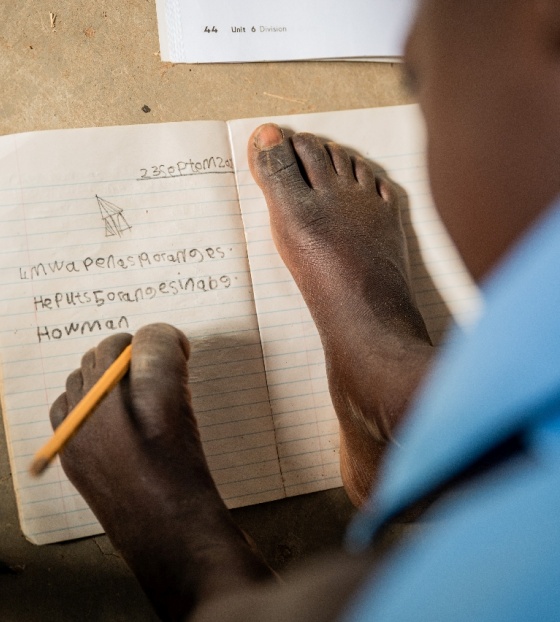 44 Unit 6 Division
23SeptemZo
4mwapenas90ranges.
HePuts5orangesinabg.
Howman